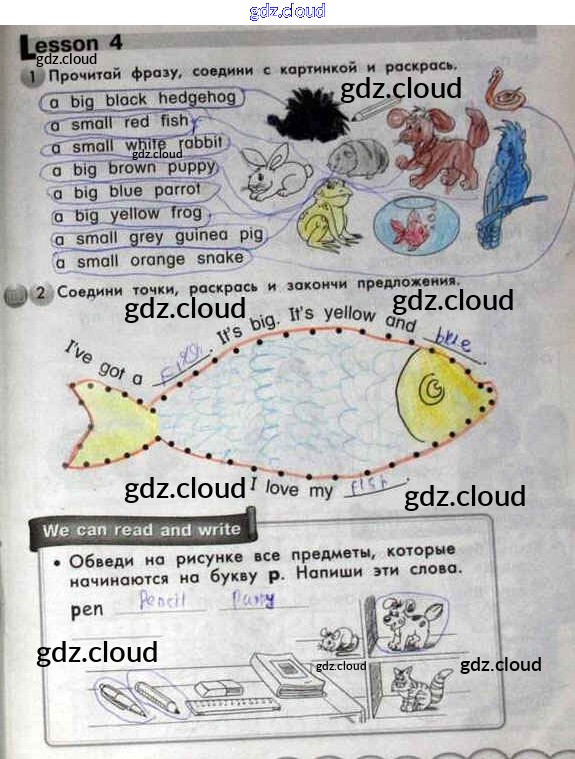 gdz.cloud
Lesson 4
gdz.cloud
1 Прочитай фразу, соедини с картинкой и раскрась.
gdz.cloud
a big black hedgehog
a small red fish
a small white rabbit
gdz.cloud
a big brown puppy
a big blue parrot
a big yellow frog
a small grey guinea pig
a small orange snake
2 Соедини точки, раскрась и закончи предложения.
gdz.cloud
gdz.cloud
I've got a fish. It's big. It's yellow and blue.
gdz.cloud
gdz.cloud
I love my fish.
We can read and write
• Обведи на рисунке все предметы, которые
начинаются на букву p. Напиши эти слова.
pen Pencil
gdz.cloud
gdz.cloud
gdz.cloud
gdz.cloud